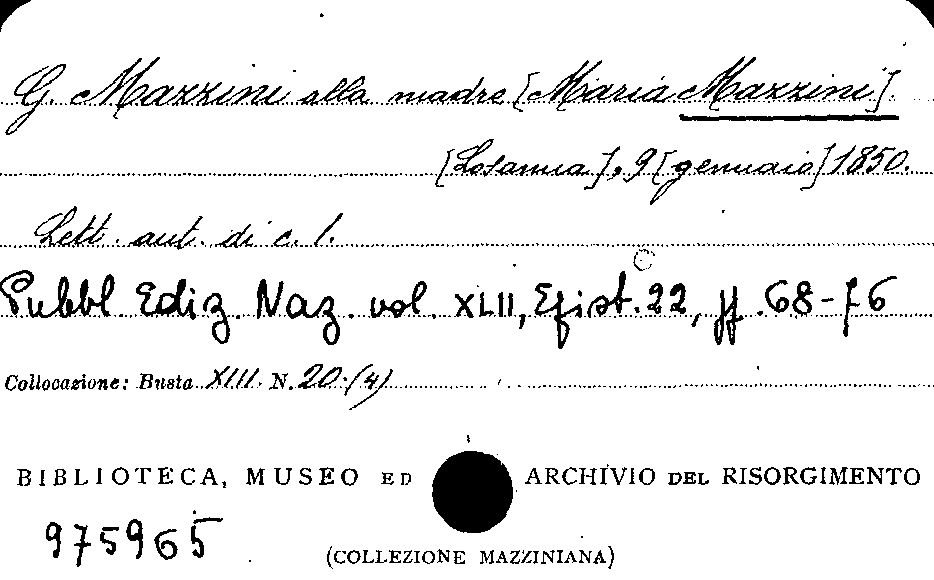 G. Mazzini alla madre [Maria Mazzini].
[Losanna], 9 [gennaio] 1850.
Lett. aut. di c. 1.
Pubbl. Ediz. Naz. vol. XLII, Epist. 22, pp. 68-76
Collocazione: Busta XIII. N. 20.(4)
BIBLIOTECA, MUSEO ED ARCHIVIO DEL RISORGIMENTO
975965
(COLLEZIONE MAZZINIANA)